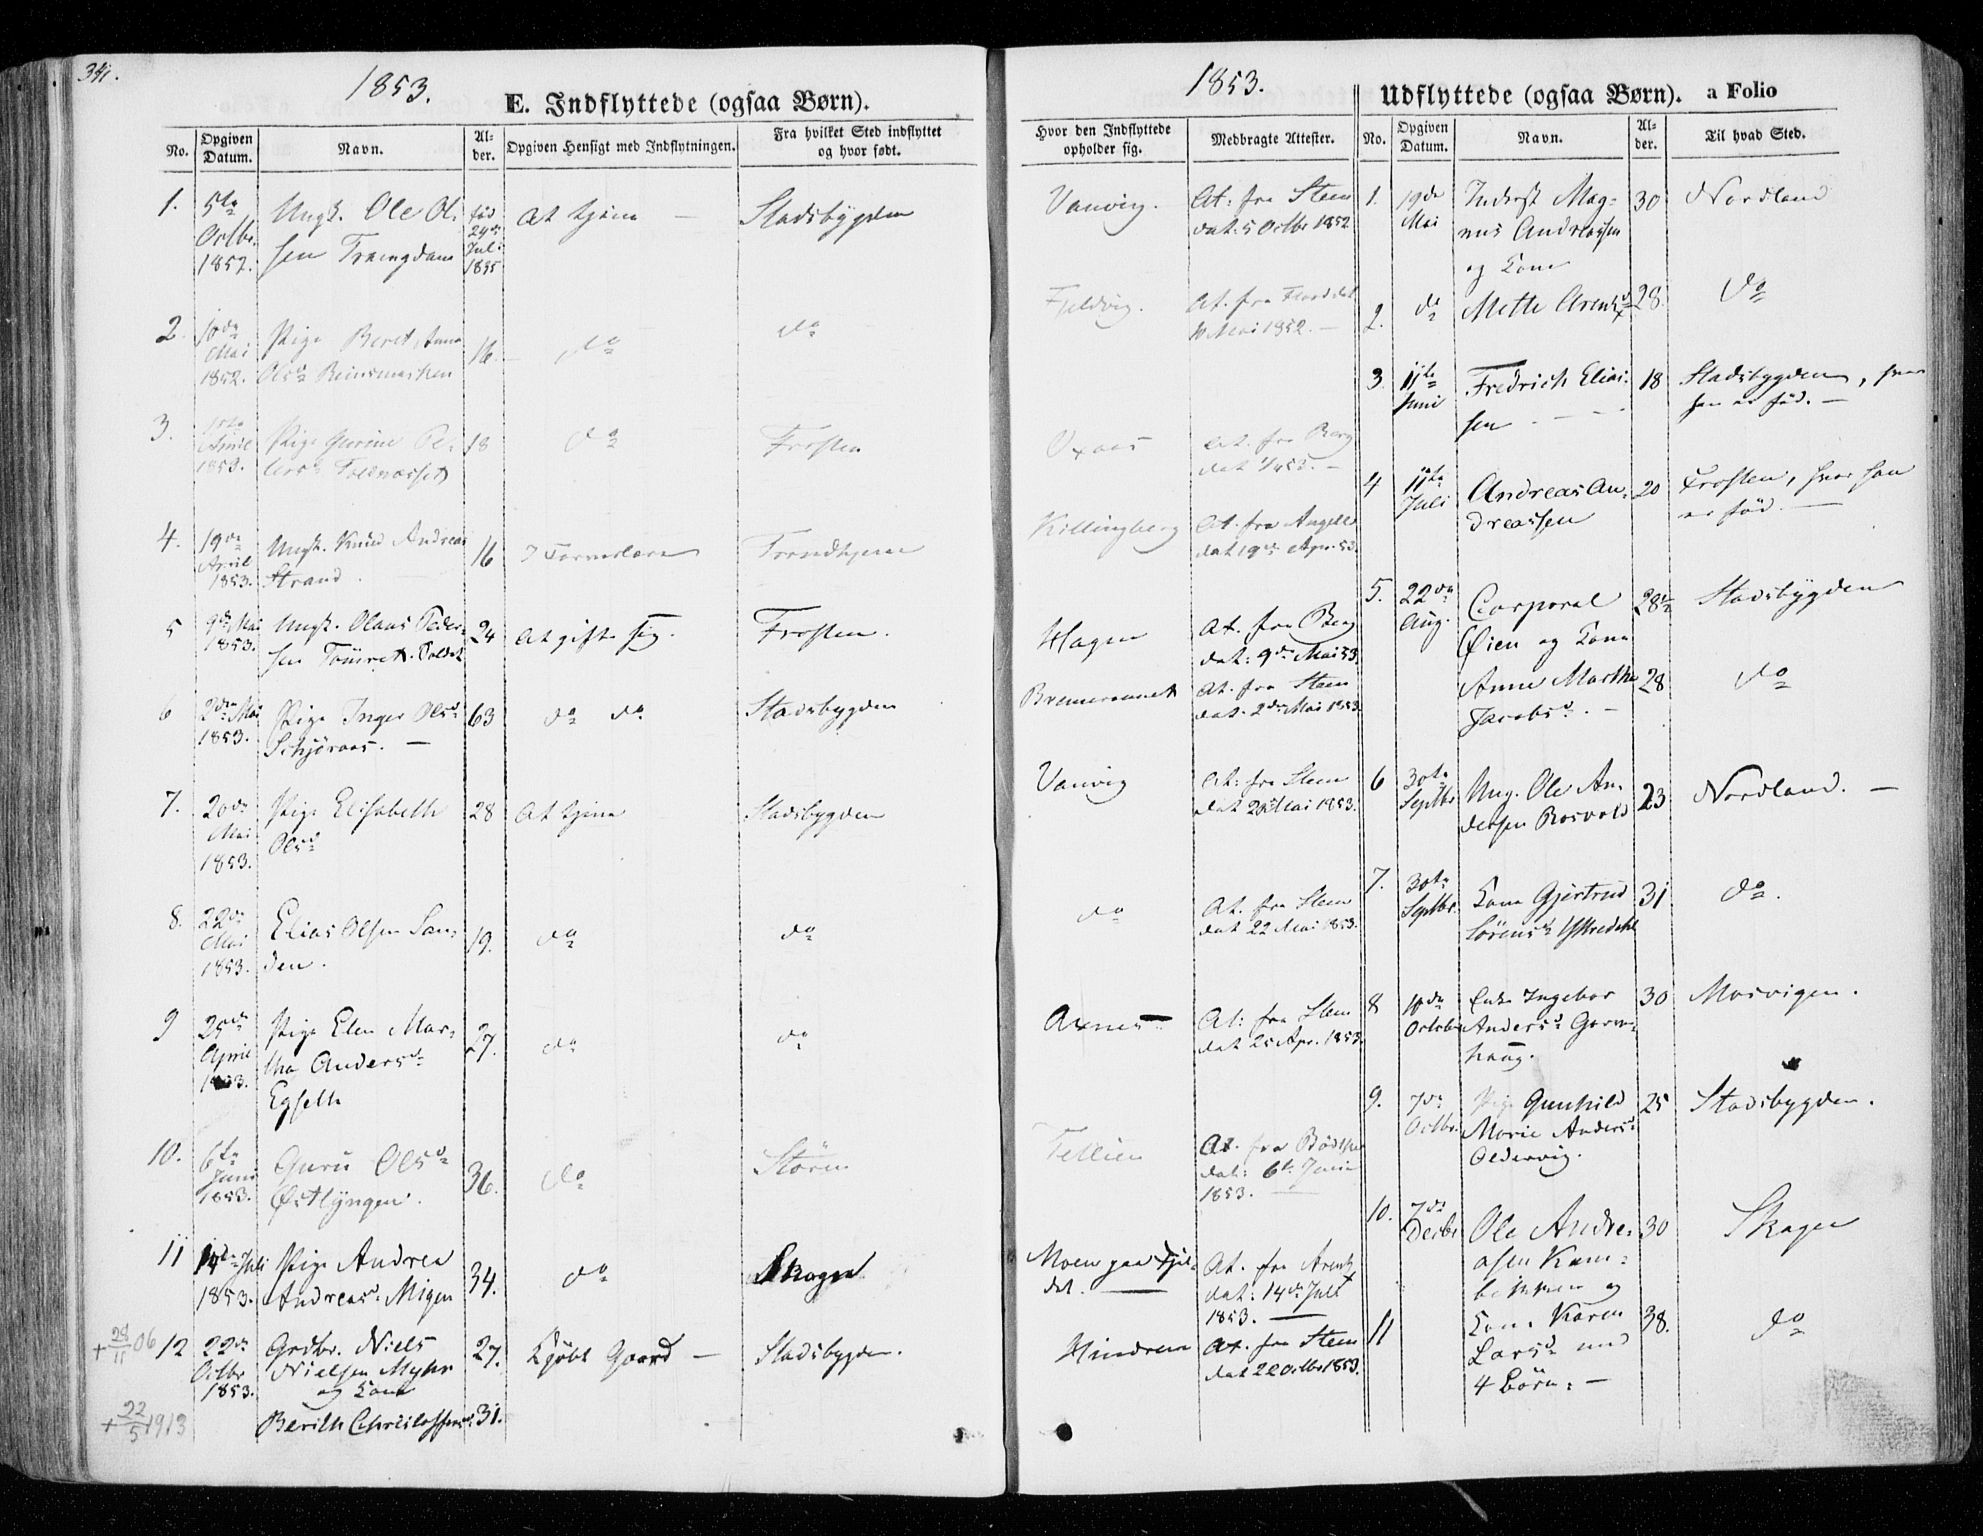 341.
1853.
E. Indflyttede (ogsaa Børn).
No. Opgiven Datum. Navn. Alder. Opgiven Hensigt med Indflytningen. Fra hvilket Sted indflyttet og hvor født.
1. 5te Octbr. 1852. Ungk. Ole Olsen født 24de Juli 1835 At tjene — Stadsbygden
2. 10de Mai 1852. Pige Beret Anna Olsd. Reinsmarken 16. do do
3. April 1853. Pige Gurine 18 do Frosten
4. 19de April 1853. Ungk. Knud Andreas Strand. 16 Trondhjem
5 9de Mai 1853. Ungk. Olaus Pedersen 24 At gifte sig. Frosten.
6 2den Mai 1853. Pige Inger Olsd. Schjeraas. — 63 do do Stadsbygden
7. 20de Mai 1853. Pige Elisabeth Olsd. 28 At tjene Stadsbygden
8. 22de Mai 1853. Elias Olsen Sanden. 19. do do
9 25de April 1853. Pige Elen Martha Andersd. Egseth 27. do do
10. 6te Juni 1853. Guru Olsd. Østlyngen. 36. do Støren
11 14de Juli 1853. Pige Andrea Andreasd. Migen 34. do Skogn
+ 28/11 06 12 22de Octbr 1853. Grdbr. Niels Nielsen Myhr og Kone 27. Kjøbt Gaard — Stadsbygden.
+ 22/5 1913 Berith Christophersd. 31.
1853.
Udflyttede (ogsaa Børn). a Folio
Hvor den Indflyttede opholder sig. Medbragte Attester. No. Opgiven Datum. Navn. Alder. Til hvad Sted.
Vanvig. At: fra Steen dat: 5 Octbr 1852
Fjeldvig. At. fra dat 10 Mai 1852. —
Oxaas At. fra Berg dat —
Killingberg At. fra Angell dat 19de Apr. 53.
Hagen At. fra Berg dat: 9de Mai 53.
At. fra Steen dat. 2den Mai 1853.
Vanvig At: fra Steen dat 20 Mai 1853.
do At. fra Steen dat 22 Mai 1853.
Axnes At: fra Steen dat 25 Apr. 1853.
Tettlien At. fra dat: 6te Juni 1853. —
Moen paa Fjeldet. — At. fra dat: 14de Juli 1853. —
Hindrem At. fra Steen dat 22 Octbr 1853.
1. 19de Mai Inderst Magnus Andreassen og Kone 30 Nordland
2. do Mette 28 do
3 11te Juni Fredrich Eliassen — 18 Stadsbygden, hvor han er fød. —
4 11te Juli Andreas Andreassen 20 Frosten, hvor han er fød. —
5. 22de Aug. Corporal Øien og Kone 28½ Stadsbygden
Anne Martha Jacobsd. — 28 do
6 30te Septbr Ung. Ole Andersen Rosvold 23 Nordland. —
7. 30te Septbr. Kone Gjertrud Sørensd. 31 do.
8 10de October Enke Ingebor Andersd. 30 Mosvigen.
9. 7de Octbr. Pige Gunhild Marie Andersd. Oldervig. 25 Stadsbygden.
10. 7de Decbr Ole Andreasen og 30 Skogn
11 Kone Karen Larsd. med 4 Børn. — 38. do